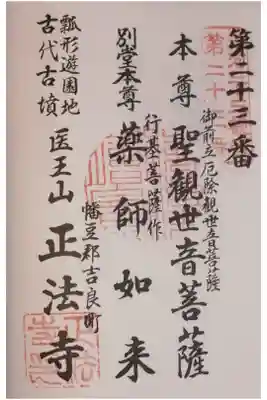 第二十三番
御前立厄除観世音菩薩
本尊聖観世音菩薩
行基菩薩作
別堂本尊薬師如来
幡豆郡吉良町
医王山正法寺
瓢形遊園地
古代古墳